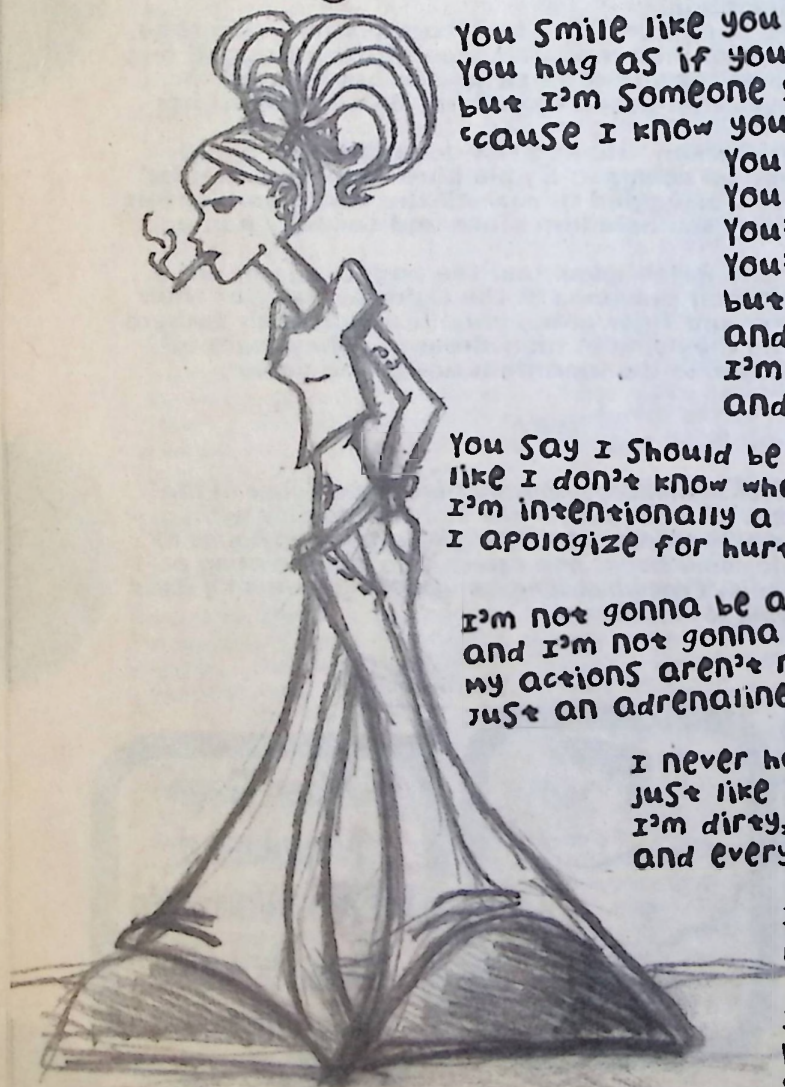 You smile like you
You hug as if you
but I'm someone
'cause I know you
You
You
You'
You'
but
and
I'm
and
You say I should be
like I don't know whe
I'm intentionally a
I apologize for hur
I'm not gonna be a
and I'm not gonna
my actions aren't
just an adrenaline
I never he
just like
I'm dirty,
and every